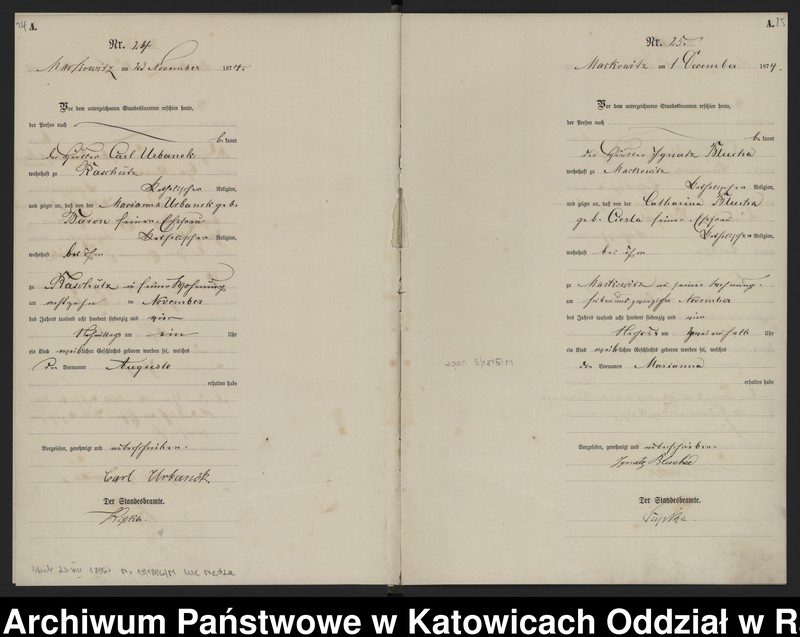 24 A.
Nr. 24
Markowitz am 22 November 1874.
Vor dem unterzeichneten Standesbeamten erschien heute,
der Person nach
bekannt
der Häusler Carl Urbanek
wohnhaft zu Raschütz
katholischer Religion,
und zeigte an, daß von der Marianna Urbanek geb.
Baron seiner Ehefrau
katholischer Religion,
wohnhaft bei ihm
zu Raschütz in seiner Wohnung
am November
des Jahres tausend acht hundert siebenzig und vier
Nachmittags um ein Uhr
ein Kind weiblichen Geschlechts geboren worden sei, welches
den Vornamen Auguste
erhalten habe
Vorgelesen, genehmigt und unterschrieben.
Carl Urbanek
Der Standesbeamte.
A. 25
Nr. 25.
Markowitz am 1 December 1874.
Vor dem unterzeichneten Standesbeamten erschien heute,
der Person nach
bekannt
der Häusler Ignatz Blucha
wohnhaft zu Markowitz
katholischer Religion,
und zeigte an, daß von der Catharina Blucha
geb. Ciesla seiner Ehefrau
katholischer Religion,
wohnhaft bei ihm
zu Markowitz in seiner Wohnung
am sieben und zwanzigsten November
des Jahres tausend acht hundert siebenzig und vier
um Uhr
ein Kind weiblichen Geschlechts geboren worden sei, welches
den Vornamen Marianna
erhalten habe
zgon 5/1875/M
Vorgelesen, genehmigt und unterschrieben.
Ignatz Blucha
Der Standesbeamte.
Archiwum Państwowe w Katowicach Oddział w Ra